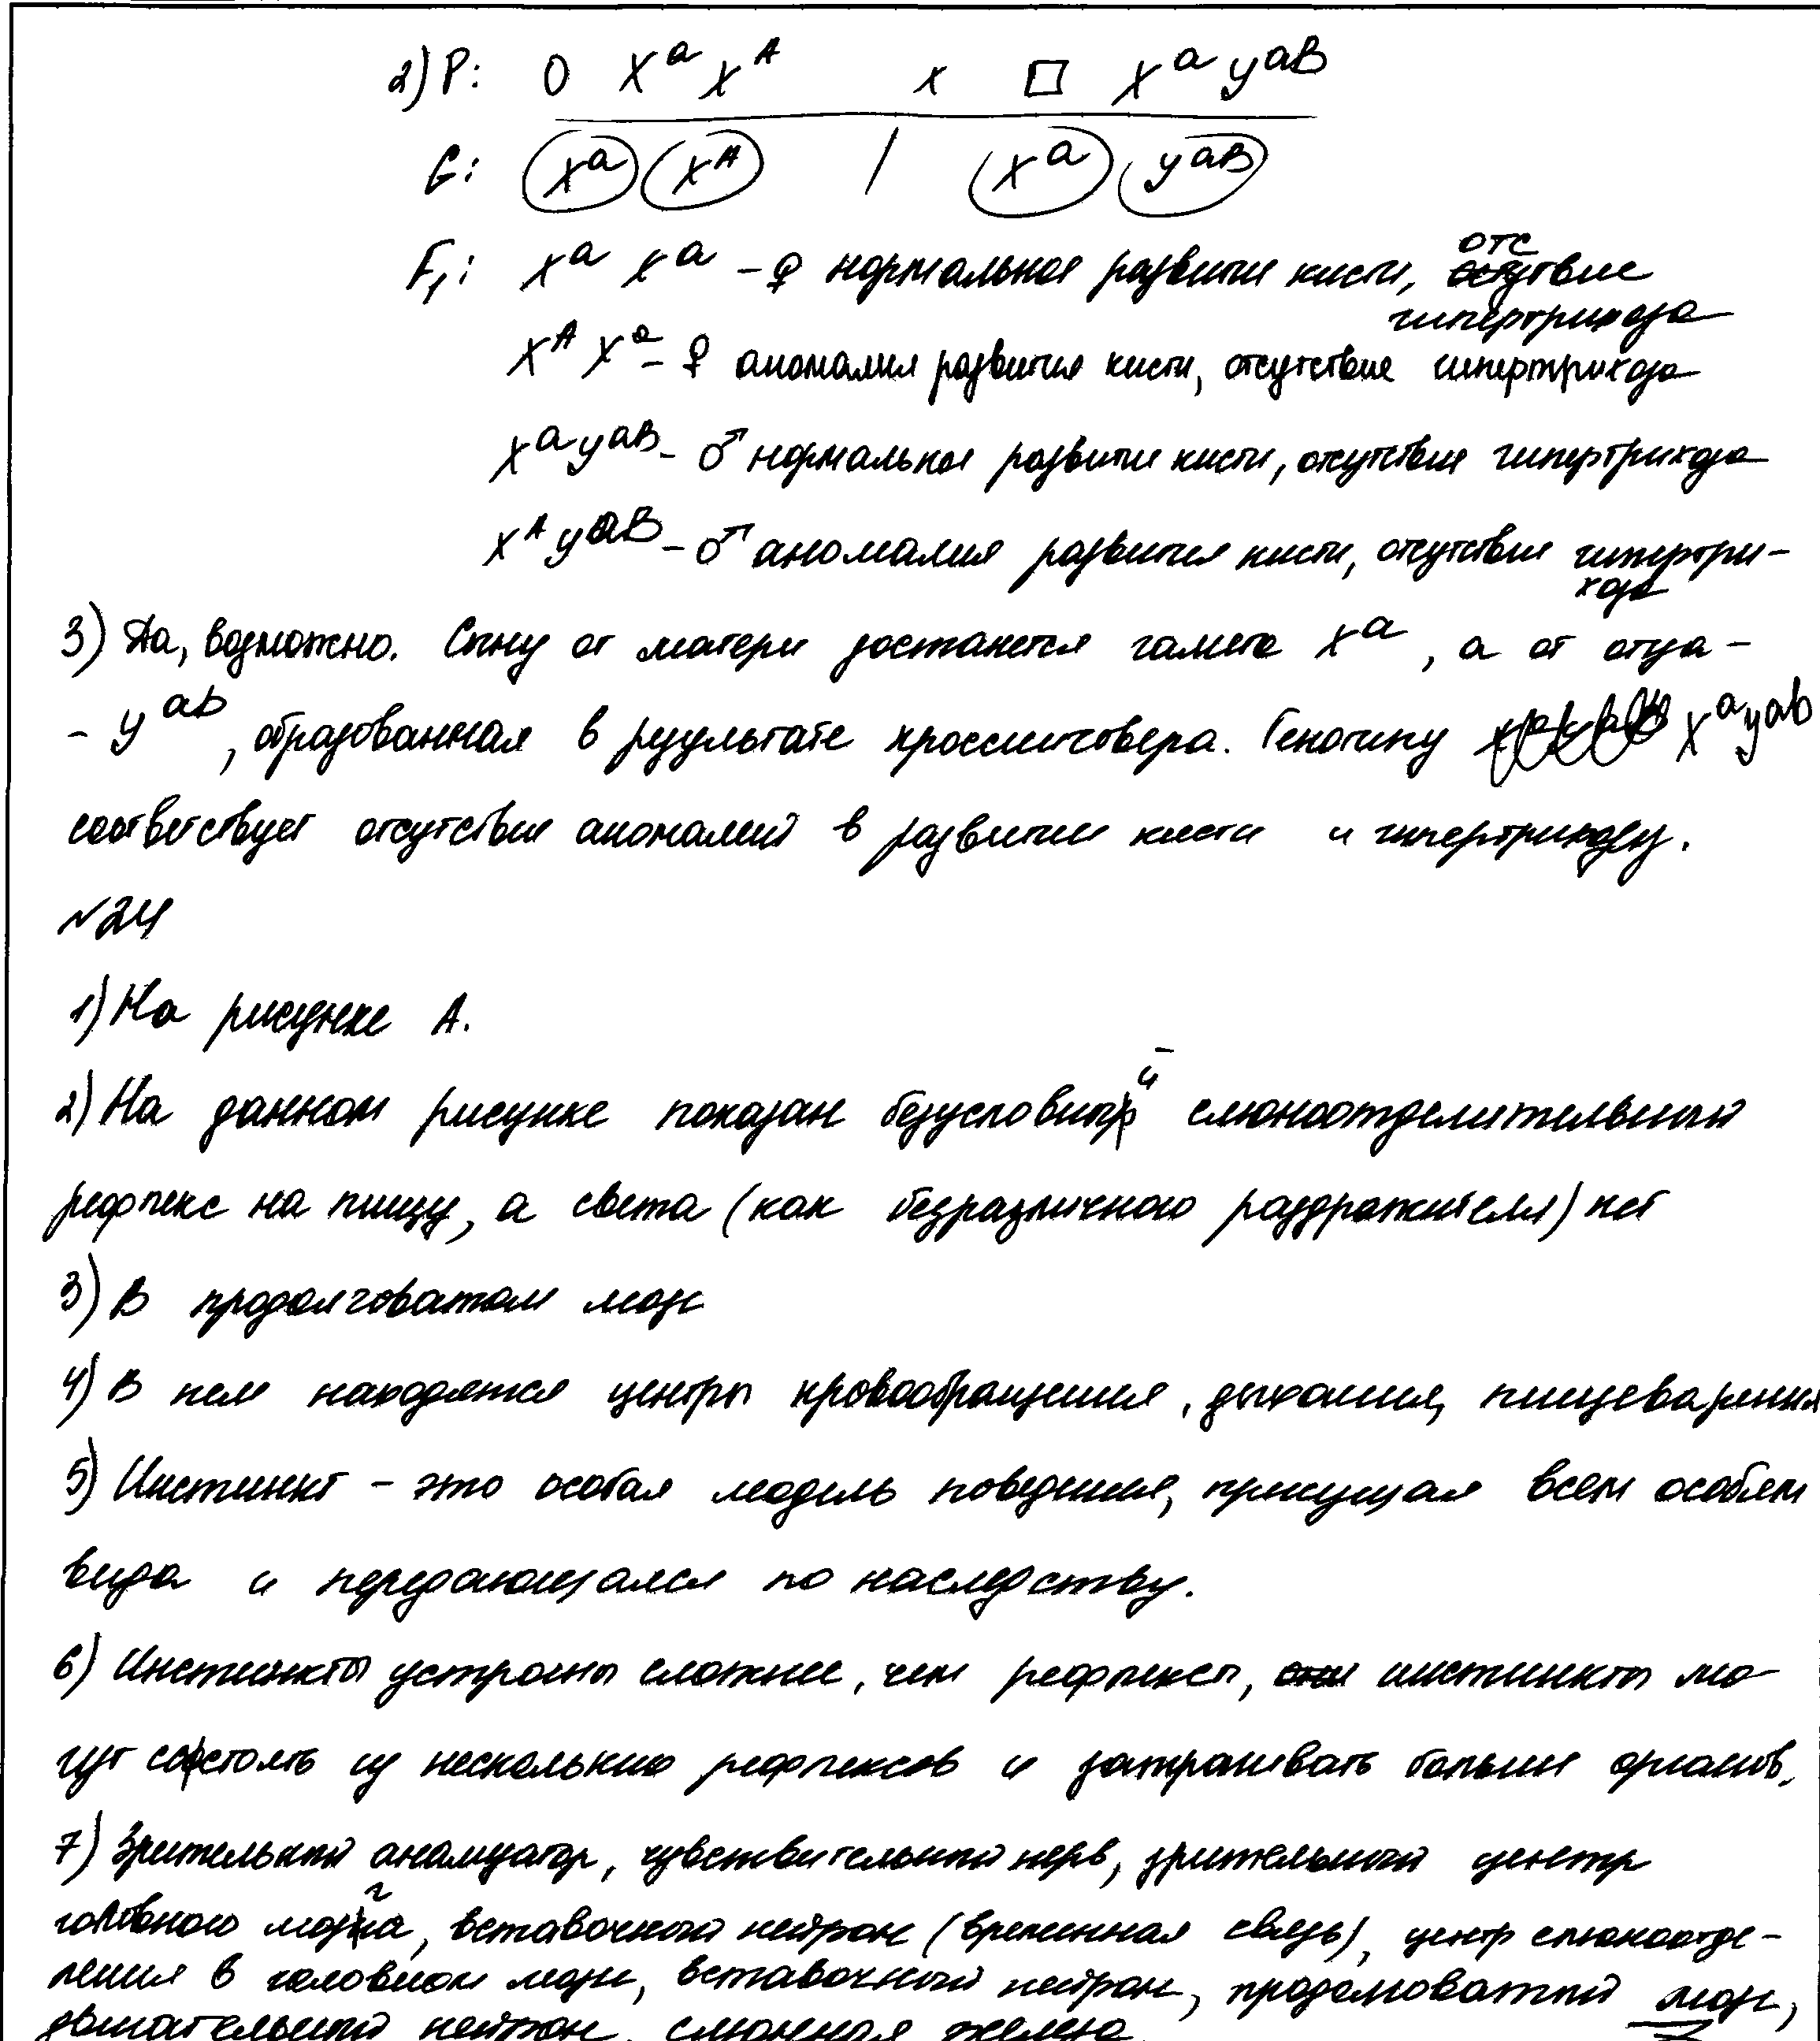 2) P: O XᵃXᴬ x □ XᵃYᵃᴮ
G: Xᵃ Xᴬ / Xᵃ Yᵃᴮ
F₁: XᵃXᵃ - ♀ нормальное развитие кисти, отсутствие гипертрихоза
XᴬXᵃ - ♀ аномалия развития кисти, отсутствие гипертрихоза
XᵃYᵃᴮ - ♂ нормальное развитие кисти, отсутствие гипертрихоза
XᴬYᵃᴮ - ♂ аномалия развития кисти, отсутствие гипертри-
хоза
3) Да, возможно. Сыну от матери достанется гамета Xᵃ, а от отца -
- Yᵃᵇ, образованная в результате кроссинговера. Генотипу XᵃYᵃᵇ
соответствует отсутствие аномалий в развитии кисти и гипертрихозу.
№24
1) На рисунке А.
2) На данном рисунке показан безусловный слюноотделительный
рефлекс на пищу, а света (как безразличного раздражителя) нет
3) В продолговатом мозге
4) В нем находятся центры кровообращения, дыхания, пищеварения
5) Инстинкт - это особая модель поведения, присущая всем особям
вида и передающаяся по наследству.
6) Инстинкты устроены сложнее, чем рефлексы, инстинкты мо-
гут состоять из нескольких рефлексов и затрагивать больше органов.
7) Зрительный анализатор, чувствительный нерв, зрительный центр
головного мозга, вставочный нейрон (временная связь), центр слюноотде-
ления в головном мозге, вставочный нейрон, продолговатый мозг,
двигательный нейрон, слюнная железа.